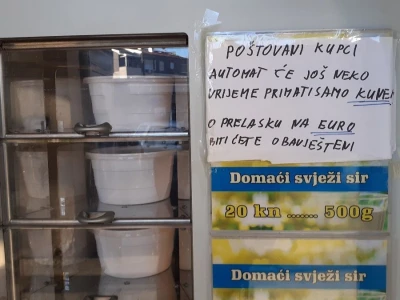 POŠTOVANI KUPCI
AUTOMAT ĆE JOŠ NEKO
VRIJEME PRIMATI SAMO KUNE!
O PRELASKU NA EURO
BITI ĆETE OBAVJEŠTENI
Domaći svježi sir
20 kn ...... 500g
Domaći svježi sir